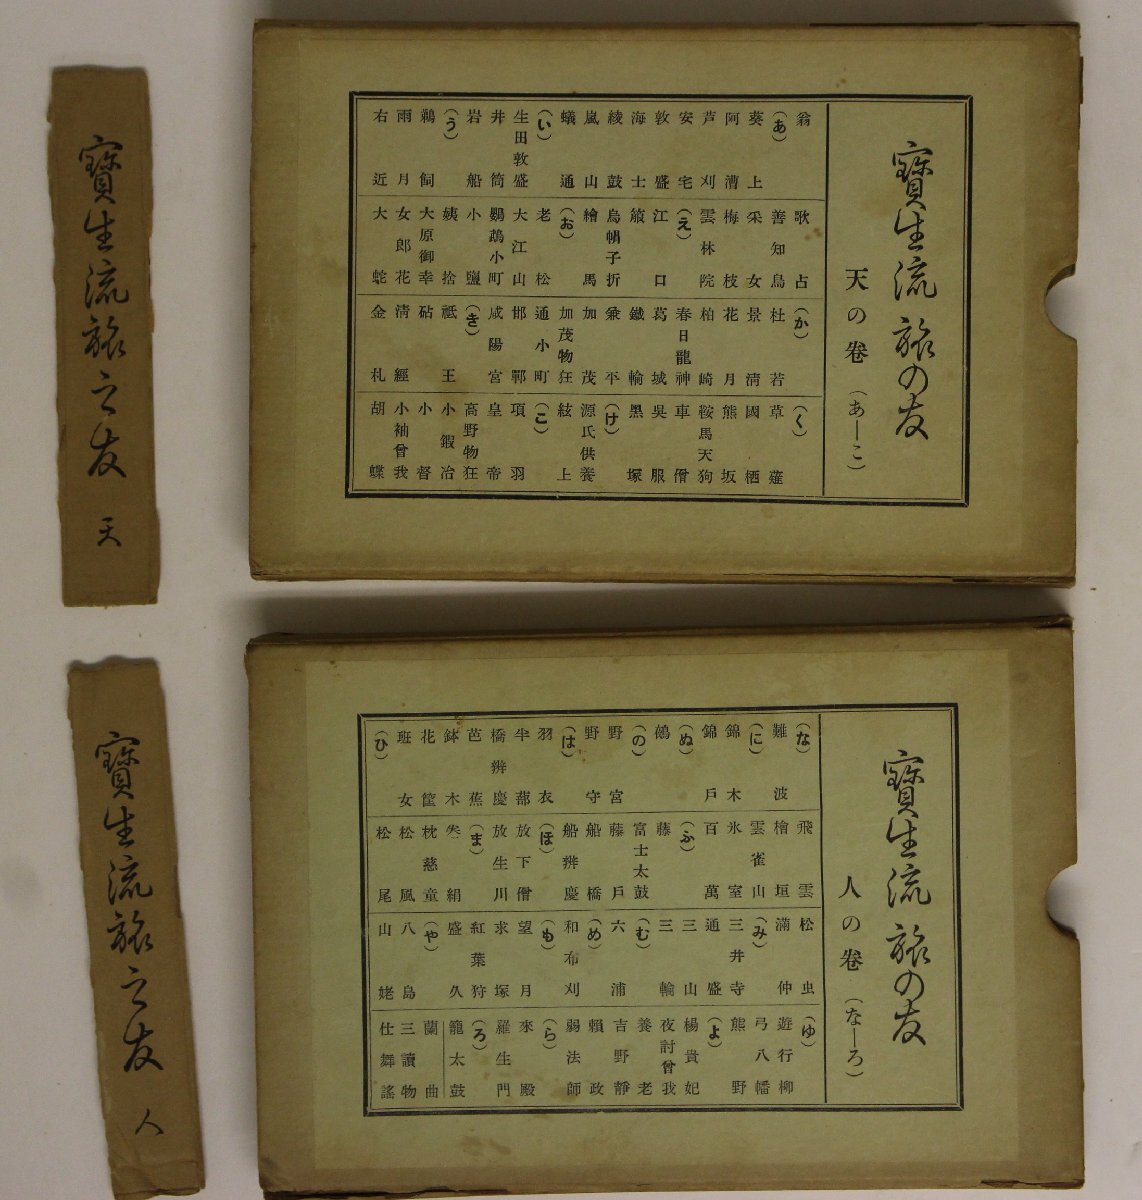 寶生流 旅の友
天の卷 (あーこ)
翁
(あ)
葵上
阿漕
芦刈
安宅
敦盛
海士
綾鼓
嵐山
蟻通
(い)
生田敦盛
井筒
岩船
(う)
鵜飼
雨月
右近
歌占
善知鳥
采女
梅枝
雲林院
(え)
江口
箙
烏帽子折
繪馬
(お)
老松
大江山
鸚鵡小町
小鹽
姨捨
大原御幸
女郎花
大蛇
(か)
杜若
景清
花月
柏崎
春日龍神
葛城
鐵輪
兼平
加茂
加茂物狂
通小町
邯鄲
咸陽宮
(き)
祗王
砧
清經
金札
(く)
草薙
國栖
熊坂
鞍馬天狗
車僧
吳服
黑塚
(け)
源氏供養
絃上
(こ)
項羽
皇帝
高野物狂
小鍜冶
小督
小袖曾我
胡蝶
寶生流旅之友 天
寶生流 旅の友
人の卷 (なーろ)
(な)
難波
(に)
錦木
錦戶
(ぬ)
鵺
(の)
野宮
野守
(は)
羽衣
半蔀
橋辨慶
芭蕉
鉢木
花筐
班女
(ひ)
飛雲
檜垣
雲雀山
氷室
百萬
(ふ)
藤
富士太鼓
藤戶
船橋
船辨慶
(ほ)
放下僧
放生川
(ま)
卷絹
枕慈童
松風
松尾
松虫
滿仲
(み)
三井寺
通盛
三山
三輪
(む)
六浦
(め)
和布刈
(も)
望月
求塚
紅葉狩
盛久
(や)
八島
山姥
(ゆ)
遊行柳
弓八幡
熊野
(よ)
楊貴妃
夜討曾我
養老
吉野靜
賴政
弱法師
(ら)
來殿
羅生門
(ろ)
籠太鼓
蘭曲
三讀物
仕舞謠
寶生流旅之友 人